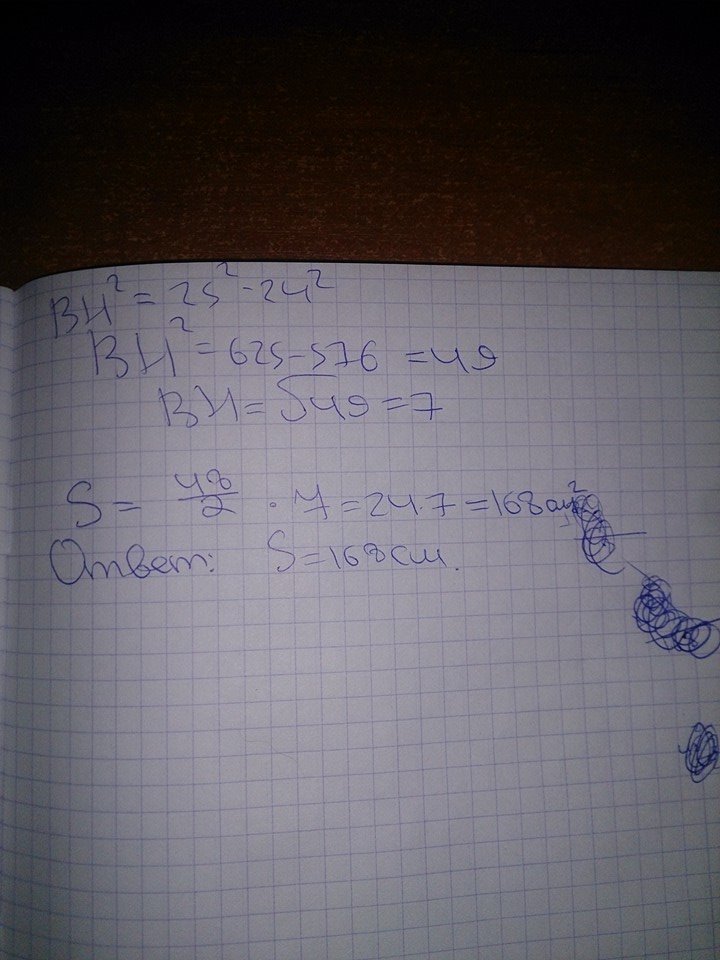 BH² = 25² - 24²
BH² = 625 - 576 = 49
BH = √49 = 7
S = 48/2 · 7 = 24·7 = 168 см²
Ответ: S = 168 см.